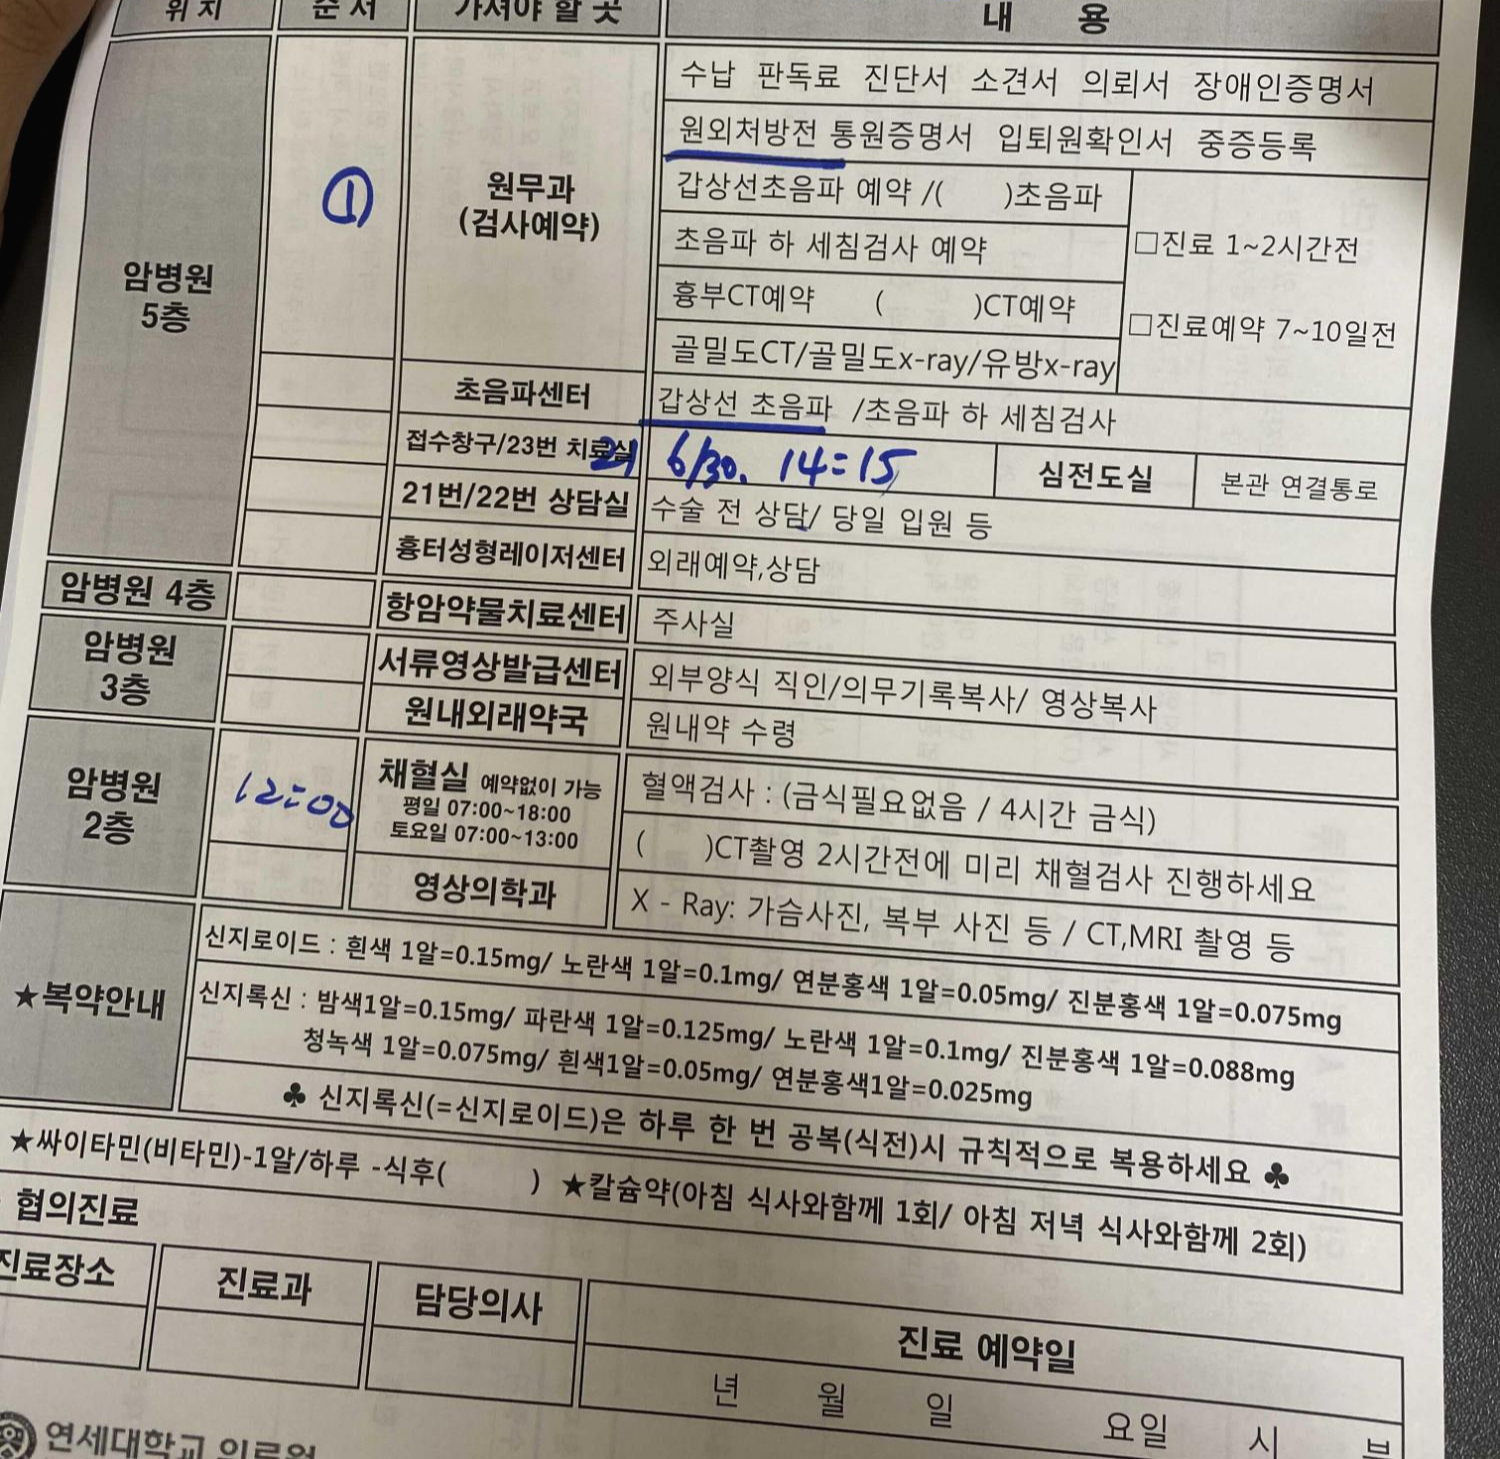 위 치 순 서 가셔야 할 곳 내 용
암병원
5층
①
원무과
(검사예약)
수납 판독료 진단서 소견서 의뢰서 장애인증명서
원외처방전 통원증명서 입퇴원확인서 중증등록
갑상선초음파 예약 /( )초음파
초음파 하 세침검사 예약
흉부CT예약 ( )CT예약
골밀도CT/골밀도x-ray/유방x-ray
□진료 1~2시간전
□진료예약 7~10일전
초음파센터 갑상선 초음파 /초음파 하 세침검사
접수창구/23번 치료실 6/30. 14:15 심전도실 본관 연결통로
21번/22번 상담실 수술 전 상담/ 당일 입원 등
흉터성형레이저센터 외래예약,상담
암병원 4층 항암약물치료센터 주사실
암병원
3층
서류영상발급센터 외부양식 직인/의무기록복사/ 영상복사
원내외래약국 원내약 수령
암병원
2층
12:00
채혈실 예약없이 가능
평일 07:00~18:00
토요일 07:00~13:00
혈액검사 : (금식필요없음 / 4시간 금식)
( )CT촬영 2시간전에 미리 채혈검사 진행하세요
영상의학과 X - Ray: 가슴사진, 복부 사진 등 / CT,MRI 촬영 등
★복약안내
신지로이드 : 흰색 1알=0.15mg/ 노란색 1알=0.1mg/ 연분홍색 1알=0.05mg/ 진분홍색 1알=0.075mg
신지록신 : 밤색1알=0.15mg/ 파란색 1알=0.125mg/ 노란색 1알=0.1mg/ 진분홍색 1알=0.088mg
청녹색 1알=0.075mg/ 흰색1알=0.05mg/ 연분홍색1알=0.025mg
♣ 신지록신(=신지로이드)은 하루 한 번 공복(식전)시 규칙적으로 복용하세요 ♣
★싸이타민(비타민)-1알/하루 -식후( ) ★칼슘약(아침 식사와함께 1회/ 아침 저녁 식사와함께 2회)
협의진료
진료장소 진료과 담당의사 진료 예약일
년 월 일 요일 시
연세대학교 의료원